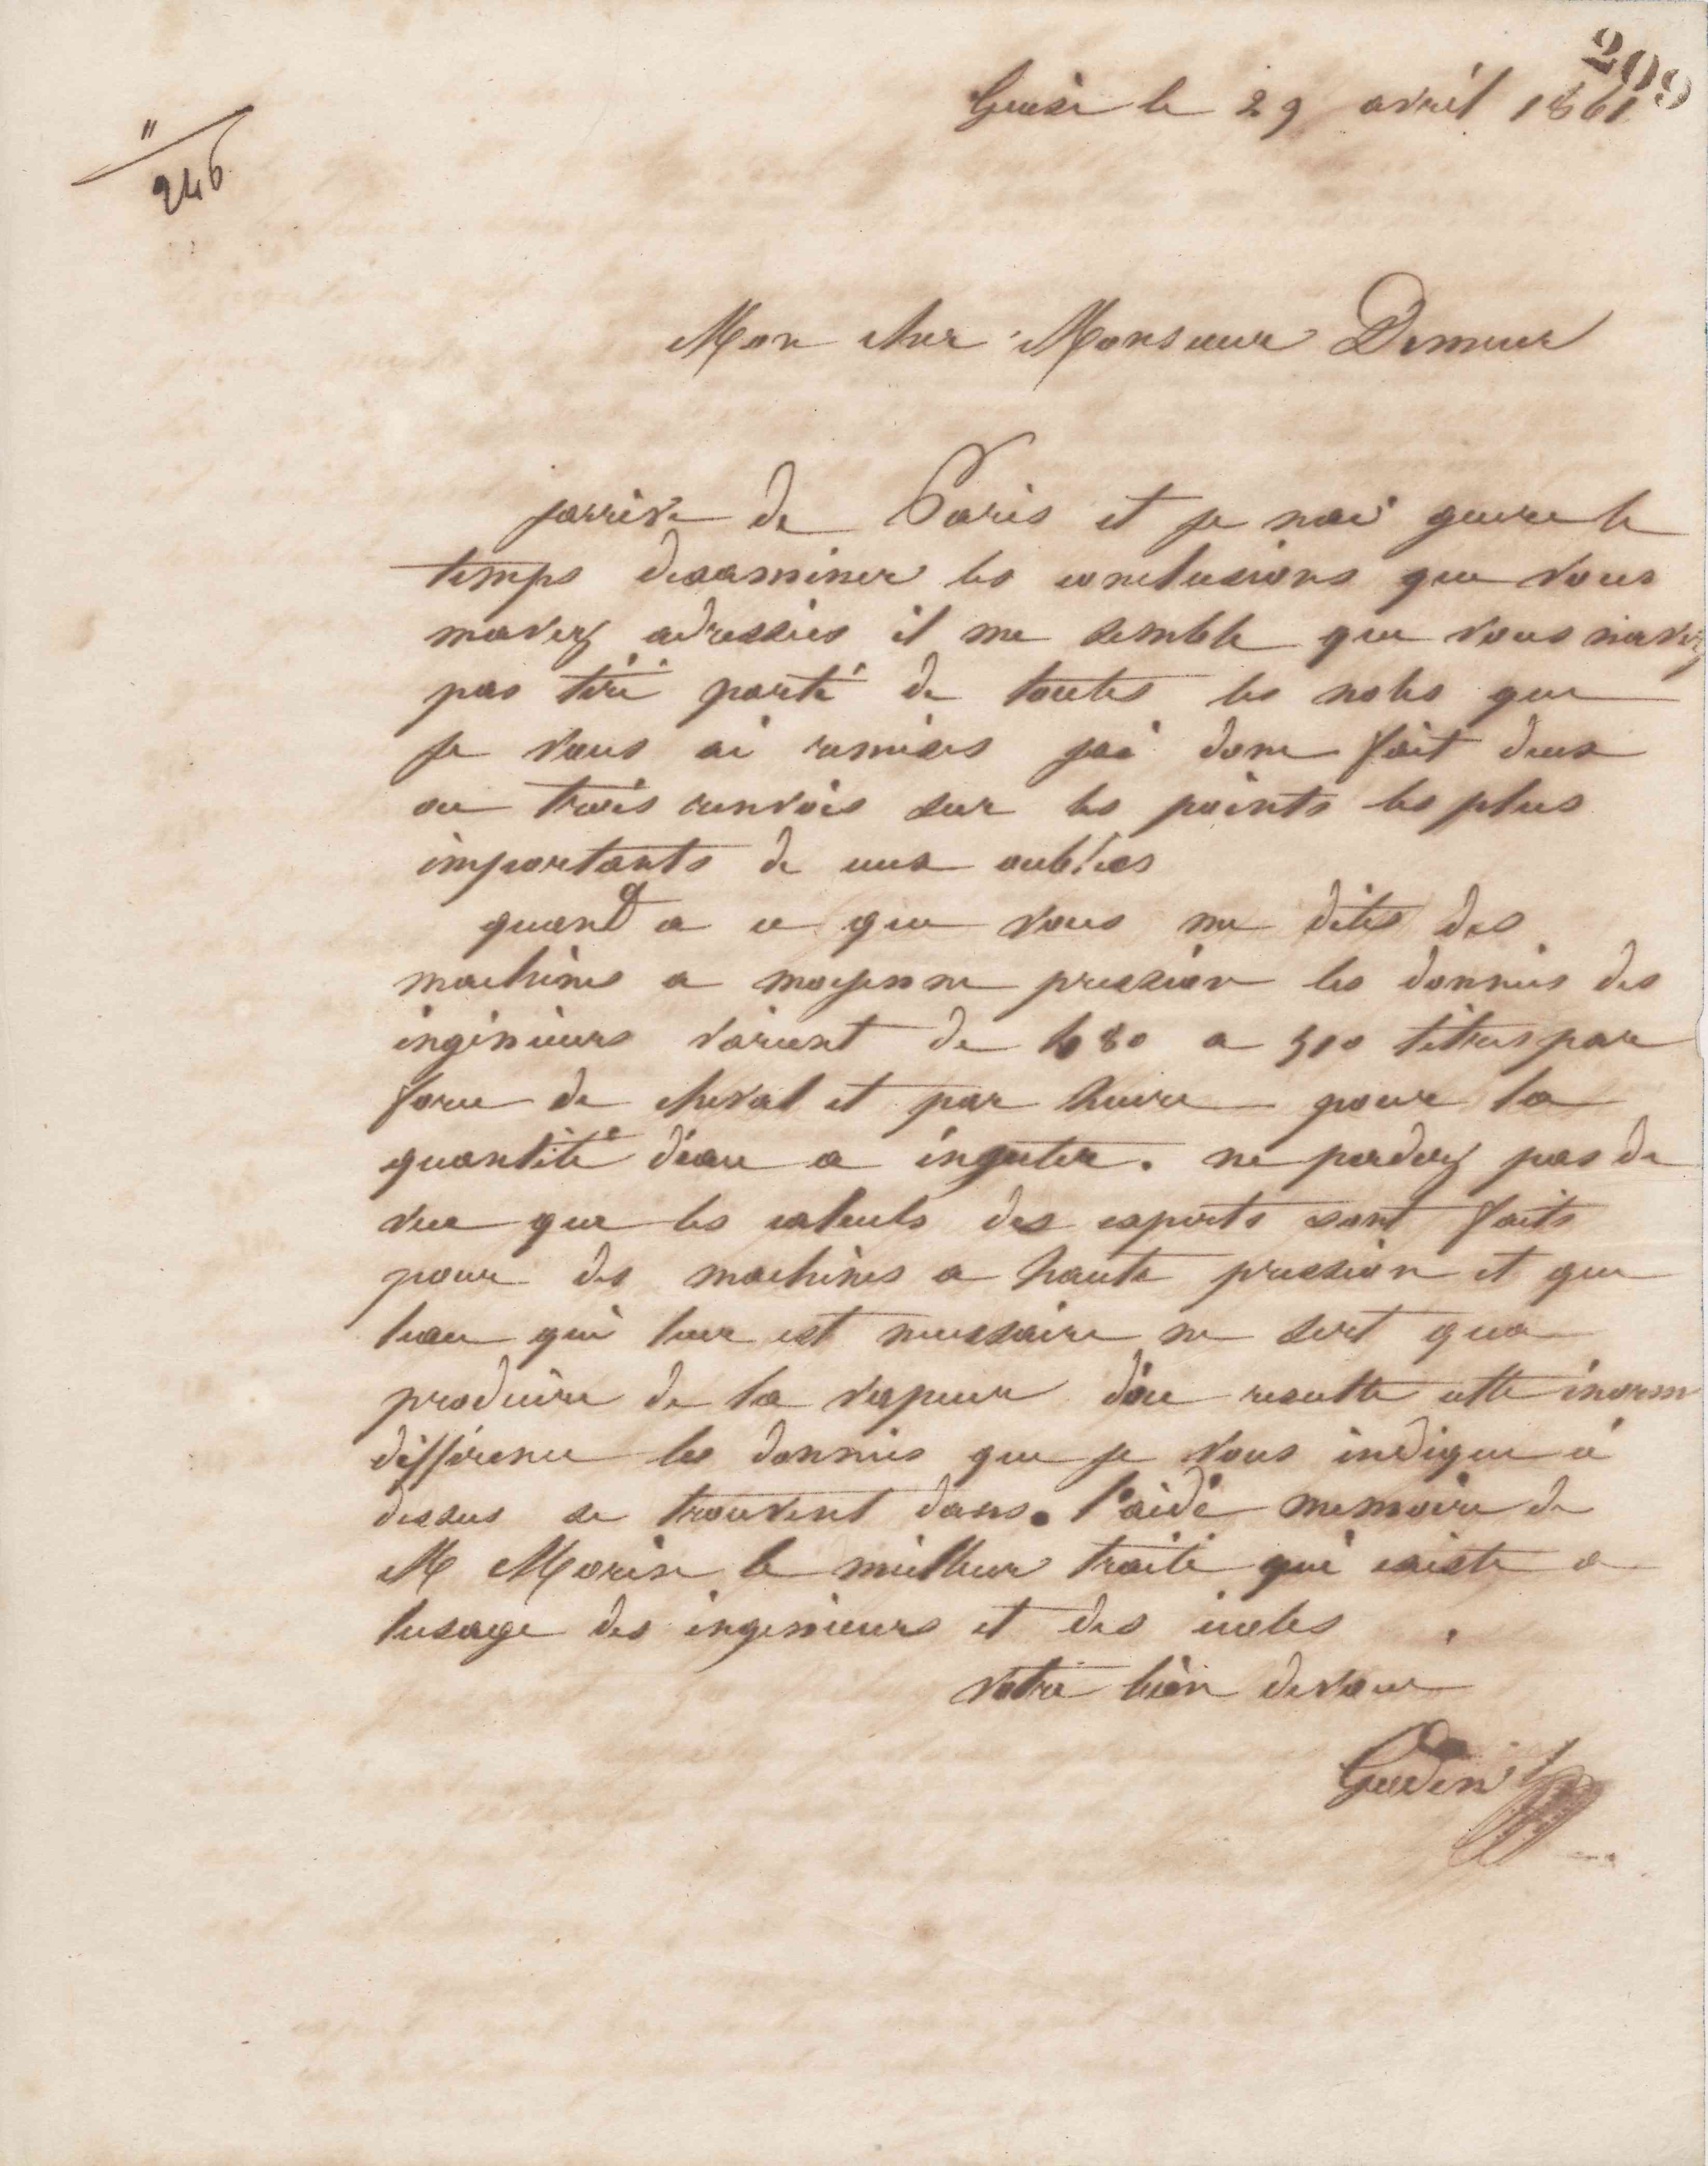 209
Guise le 29 avril 1861
"
246
Mon cher Monsieur Demeur
jarrive de Paris et je nai guere le
temps dexaminer les conclusions que vous
mavez adressées il me semble que vous navez
pas tiré parti de toutes les notes que
je vous ai remises jai donc fait deux
ou trois renvois sur les points les plus
importants de ceux oubliés
quand a ce que vous me dites des
machines a moyenne pression les données des
ingénieurs varient de 480 a 510 litres par
force de cheval et par heure pour la
quantité deau a injecter. ne perdez pas de
vue que les calculs des experts sont faits
pour des machines a haute pression et que
leau qui leur est necessaire ne sert qua
produire de la vapeur dou resulte cette énorme
différence les données que je vous indique ci
dessus se trouvent dans l'aide memoire de
M Morin le meilleur traité qui existe a
lusage des ingenieurs et des écoles.
votre bien devoué
Godin